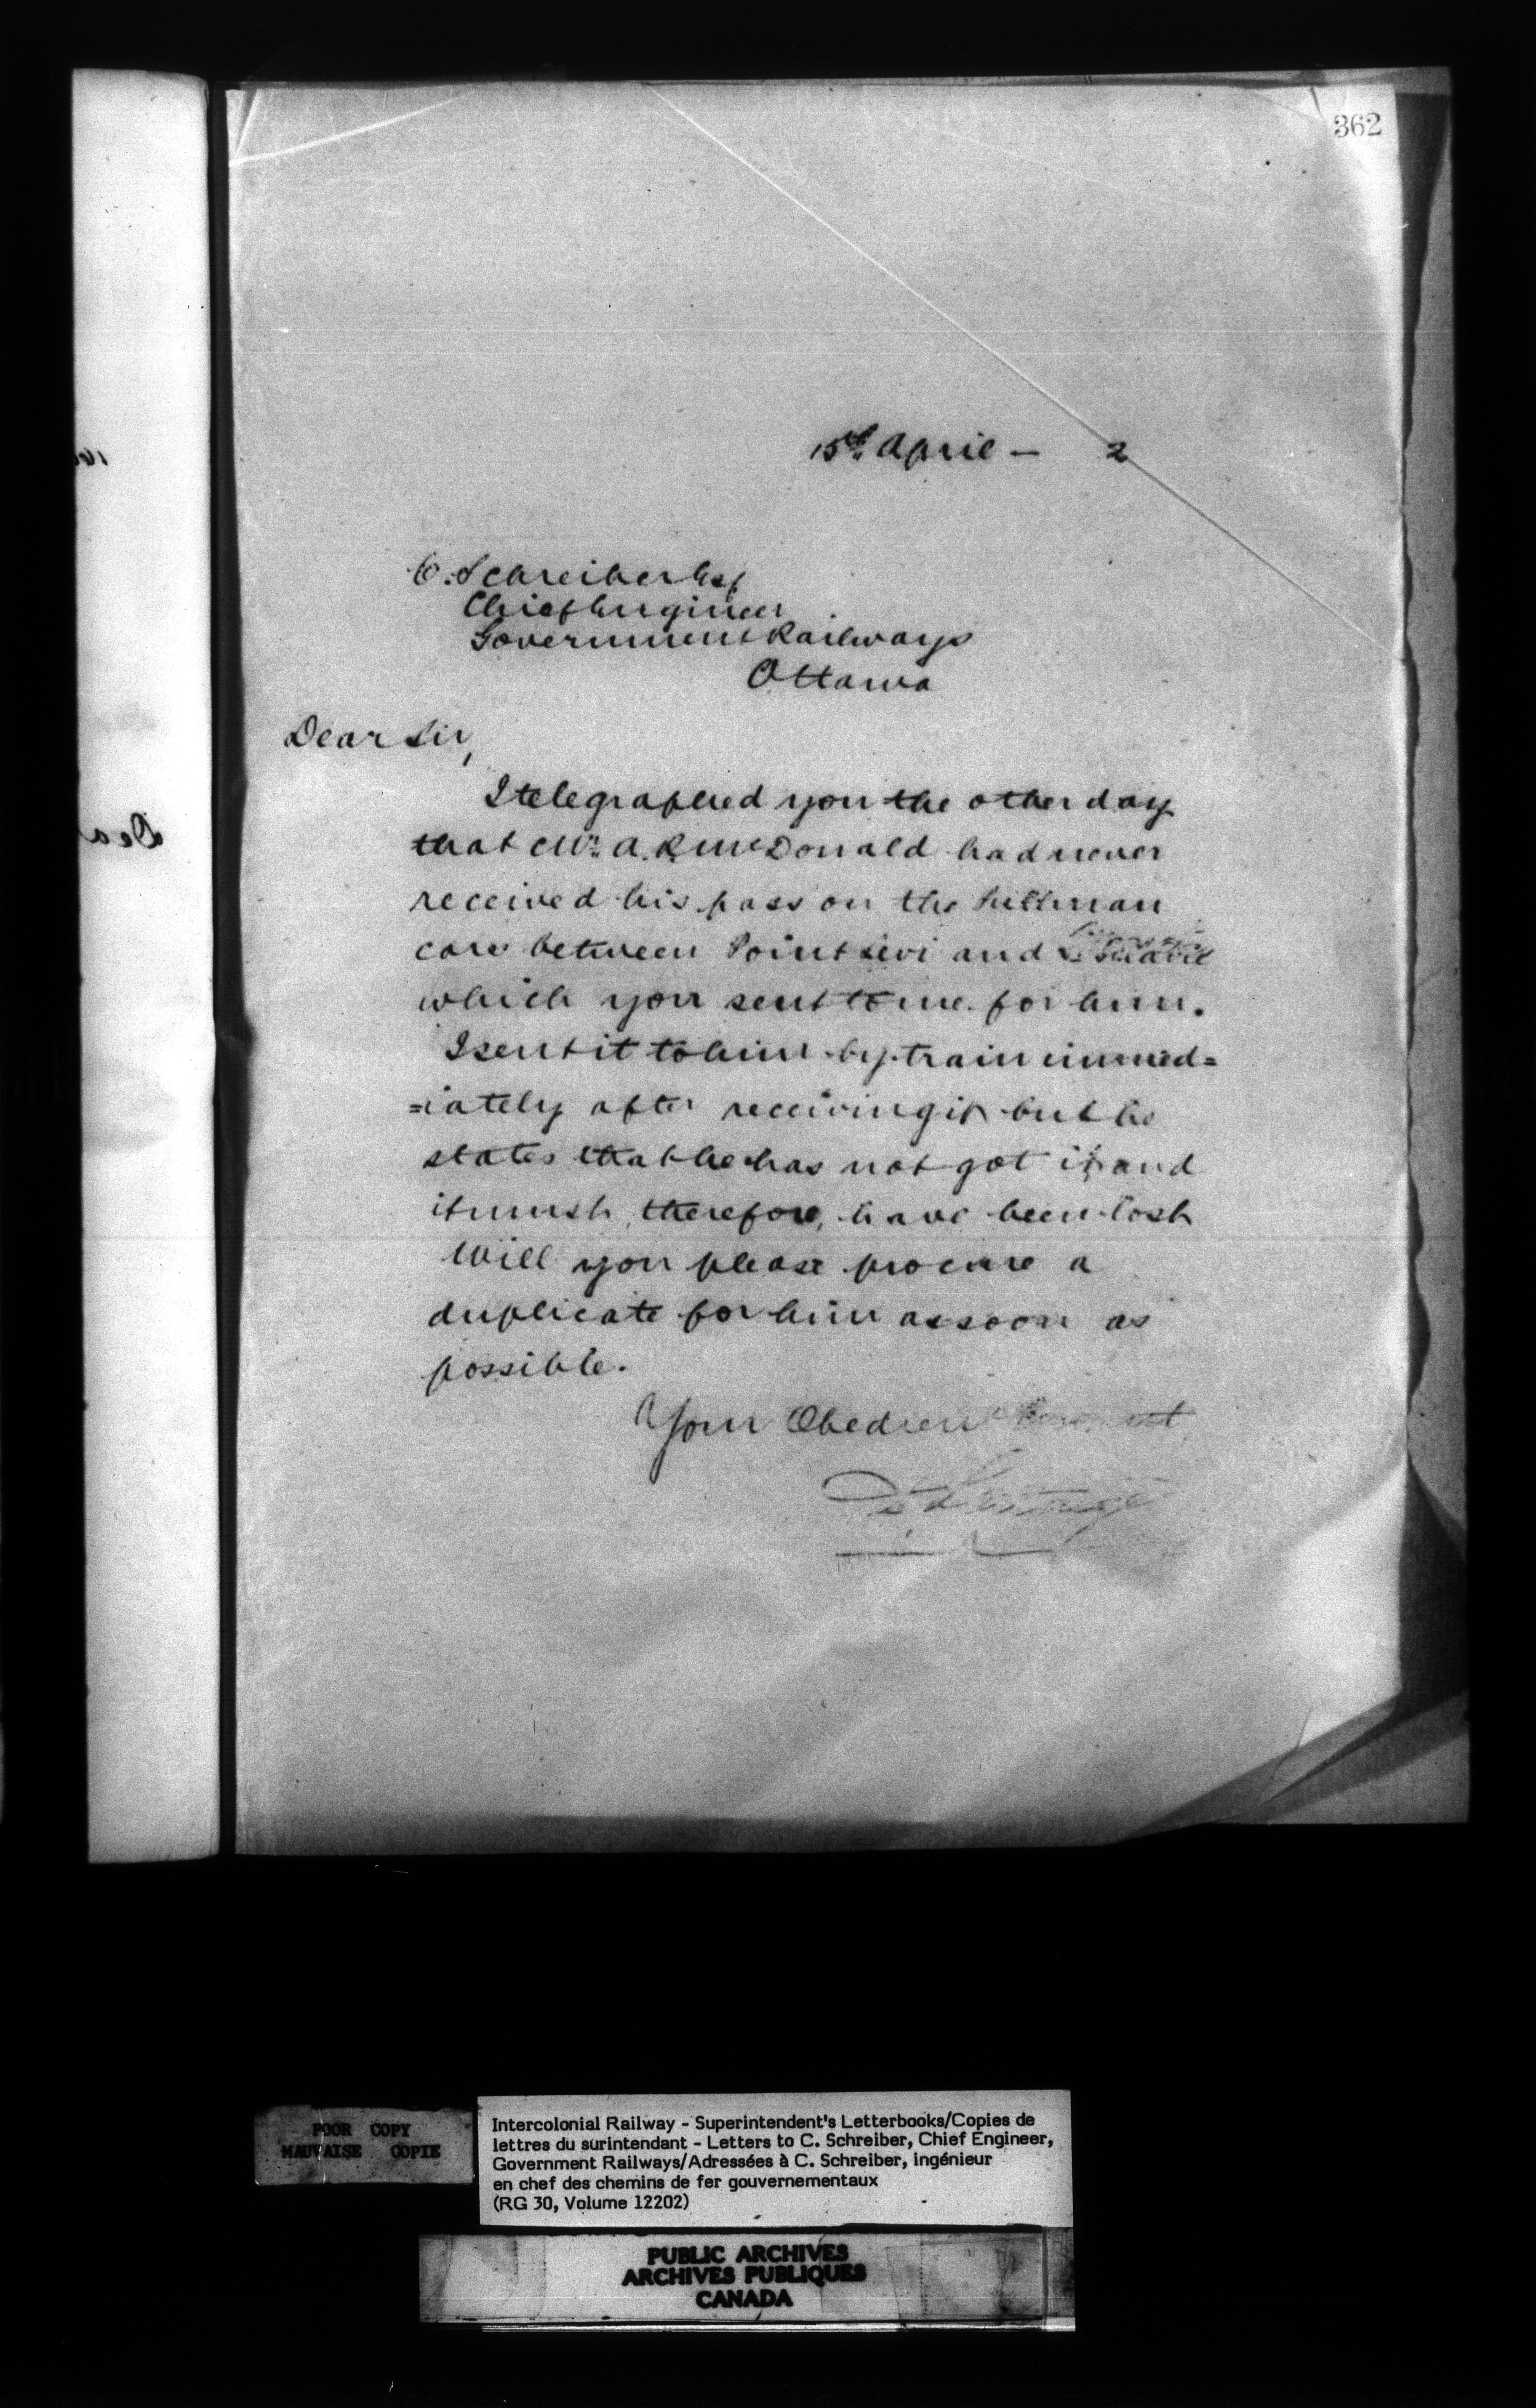 362
15th April – 2
C. Schreiber Esq
Chief Engineer
Government Railways
Ottawa
Dear Sir,
I telegraphed you the other day
that Mr. A. R. McDonald had never
received his pass on the Pullman
cars between Point Levi and
which you sent to me for him.
I sent it to him by train immed=
=iately after receiving it but he
states that he has not got it and
it must, therefore, have been lost
Will you please procure a
duplicate for him as soon as
possible.
Your Obedient Servant
Dea
POOR COPY
MAUVAISE COPIE
Intercolonial Railway - Superintendent's Letterbooks/Copies de
lettres du surintendant - Letters to C. Schreiber, Chief Engineer,
Government Railways/Adressées à C. Schreiber, ingénieur
en chef des chemins de fer gouvernementaux
(RG 30, Volume 12202)
PUBLIC ARCHIVES
ARCHIVES PUBLIQUES
CANADA